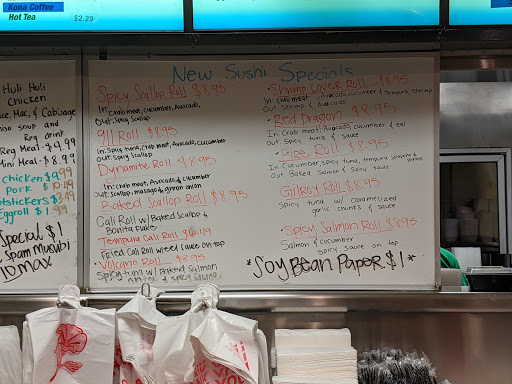 Kona Coffee
Hot Tea $2.29
Huli Huli
Chicken
Mac, & Cabbage
miso soup and
Reg drink
Reg Meal - $9.99
Mini Meal - $8.99
Chicken $9.99
Pork
Potstickers
Eggroll $1.99
Special $1
Spam Musubi
10 max
New Sushi Specials
Spicy Scallop Roll $8.95
In: Crab meat, cucumber, Avocado,
Out: Spicy Scallop
911 Roll $8.95
In: Spicy tuna, Crab meat, Avocado, Cucumber
Out: Spicy Scallop
Dynamite Roll $8.95
In: crab meat, Avocado & Cucumber
Out: Scallop, masago & green onion
Baked Scallop Roll $8.95
Cali Roll w/ Baked Scallop &
Bonita Flake
Tempura Cali Roll
Fried Cali Roll w/ eel sauce on top
Volcano Roll - $8.95
Spicy tuna w/ Baked Salmon
Shrimp Lover Roll $8.95
In: Crab meat, Avocado, cucumber & tempura shrimp
Out: Shrimp & Avocado
Red Dragon $8.95
In: Crab meat, Avocado, cucumber & eel
Out: Spicy tuna & sauce
Fire Roll $8.95
In: Cucumber, spicy tuna, tempura
Out: Baked Salmon & Spicy sauce
Gilroy Roll $8.95
Spicy tuna w/ caramelized
garlic chunks & sauce
Spicy Salmon Roll $8.95
Salmon & cucumber
spicy sauce on top
*Soy Bean Paper $1*